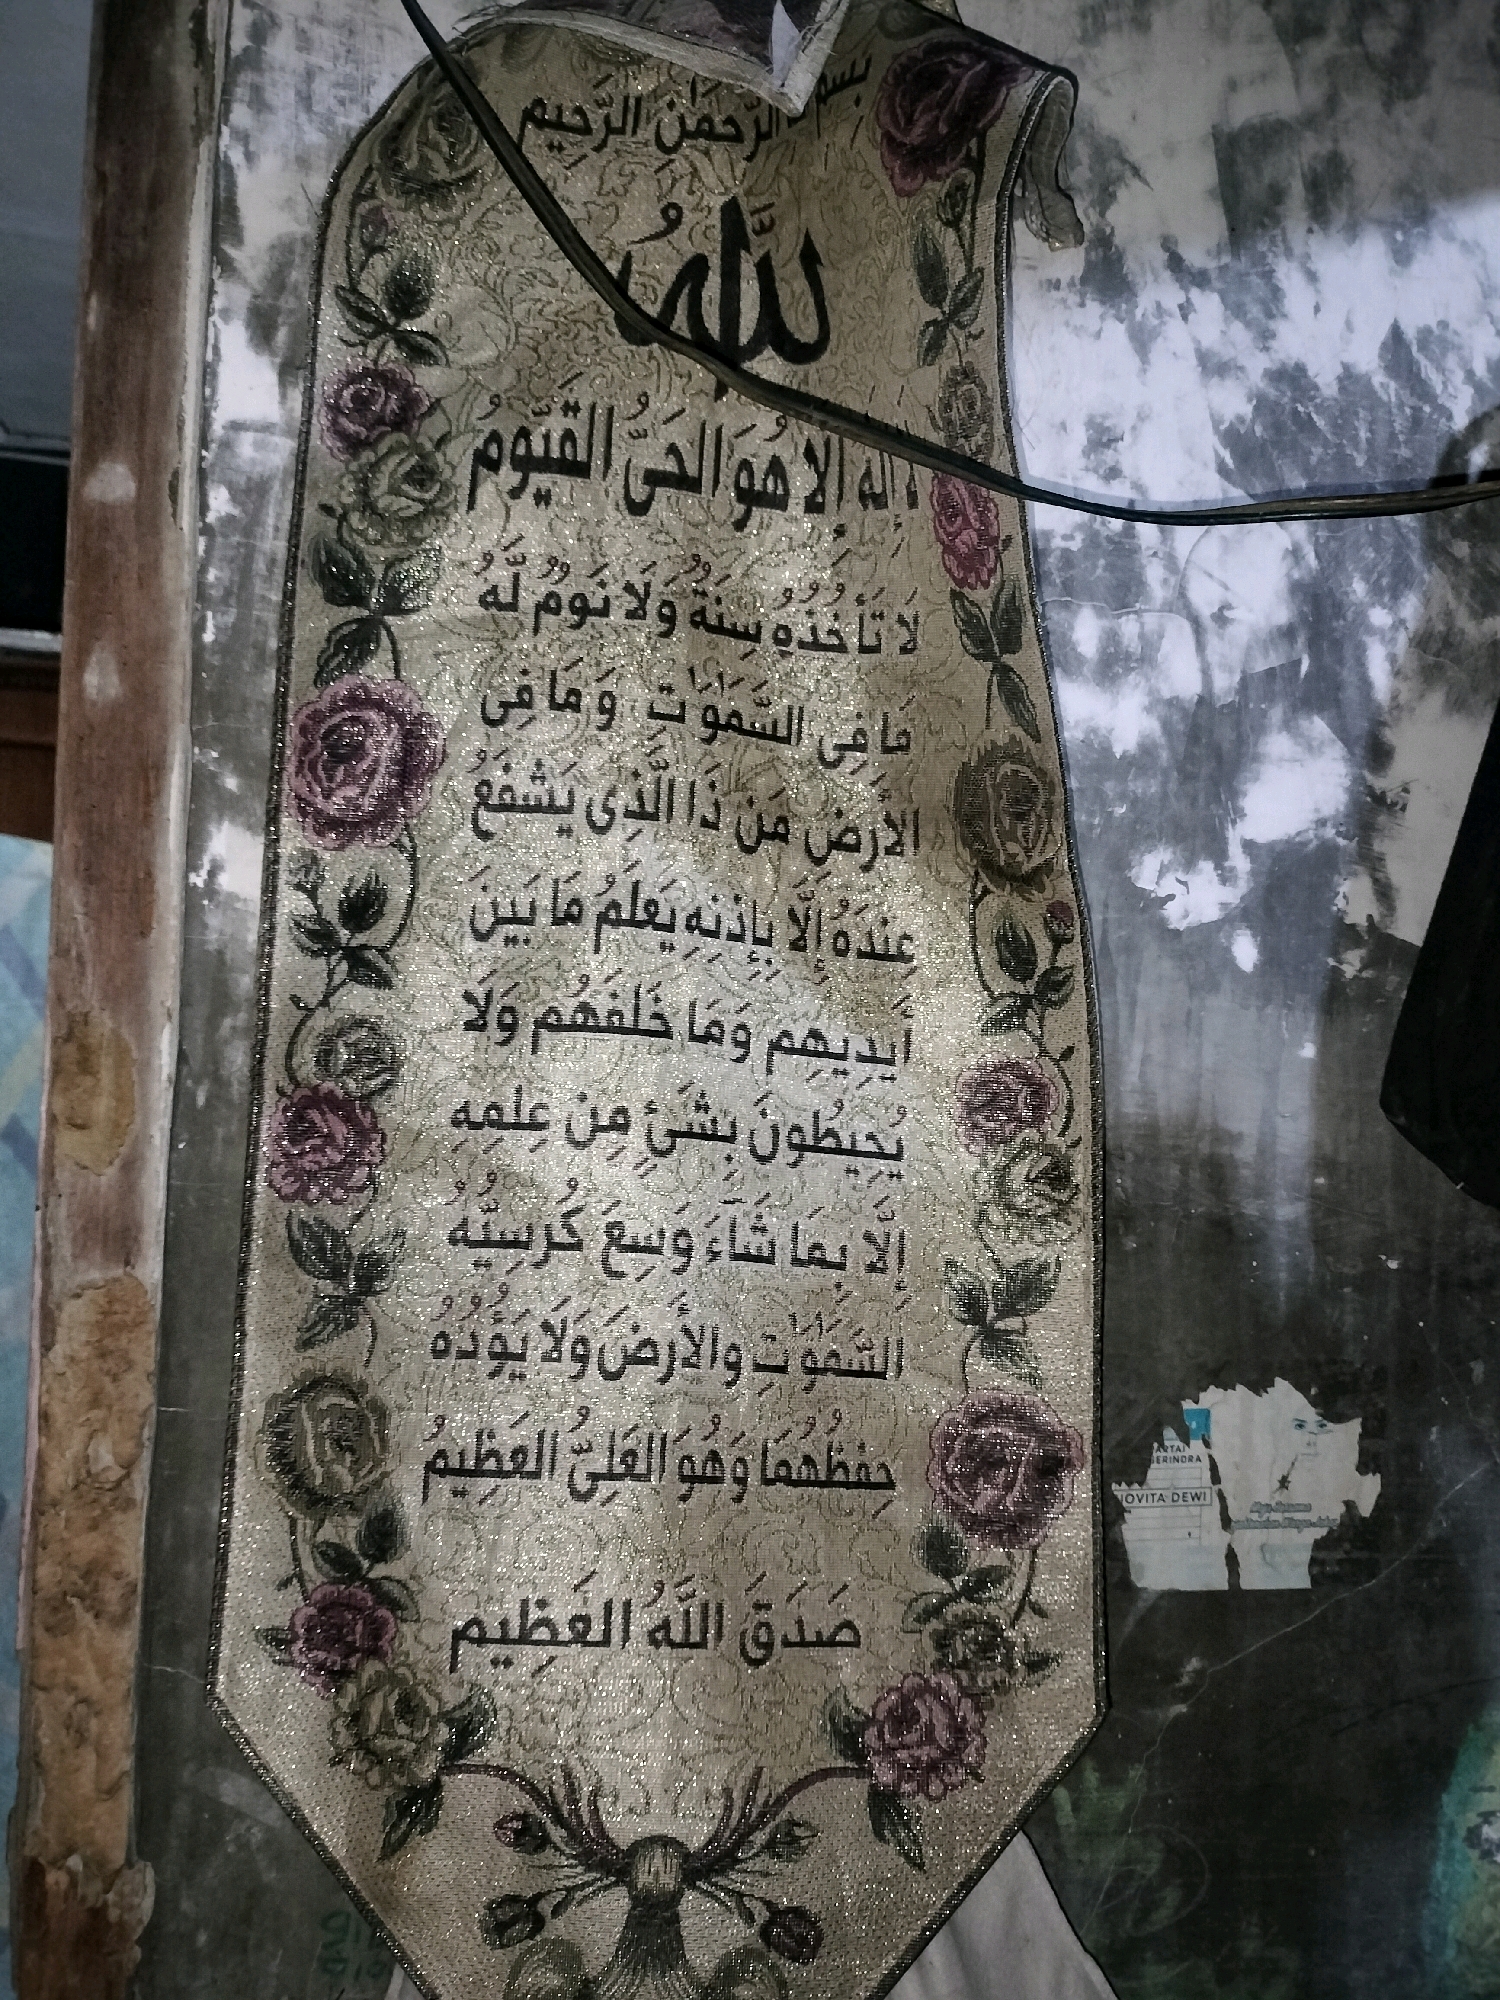 بِسْمِ الرَّحْمٰنِ الرَّحِيْمِ
اَللّٰهُ
إِلٰهَ إِلَّا هُوَ الْحَىُّ الْقَيُّومُ
لَا تَأْخُذُهُ سِنَةٌ وَلَا نَوْمٌ لَّهُ
مَا فِى السَّمٰوٰتِ وَمَا فِى
الْأَرْضِ مَنْ ذَا الَّذِى يَشْفَعُ
عِنْدَهُ إِلَّا بِإِذْنِهِ يَعْلَمُ مَا بَيْنَ
أَيْدِيهِمْ وَمَا خَلْفَهُمْ وَلَا
يُحِيطُونَ بِشَىْءٍ مِنْ عِلْمِهِ
إِلَّا بِمَا شَآءَ وَسِعَ كُرْسِيُّهُ
السَّمٰوٰتِ وَالْأَرْضَ وَلَا يَؤُدُهُ
حِفْظُهُمَا وَهُوَ الْعَلِىُّ الْعَظِيمُ
صَدَقَ اللّٰهُ الْعَظِيمِ
ARTAI
GERINDRA
NOVITA DEWI